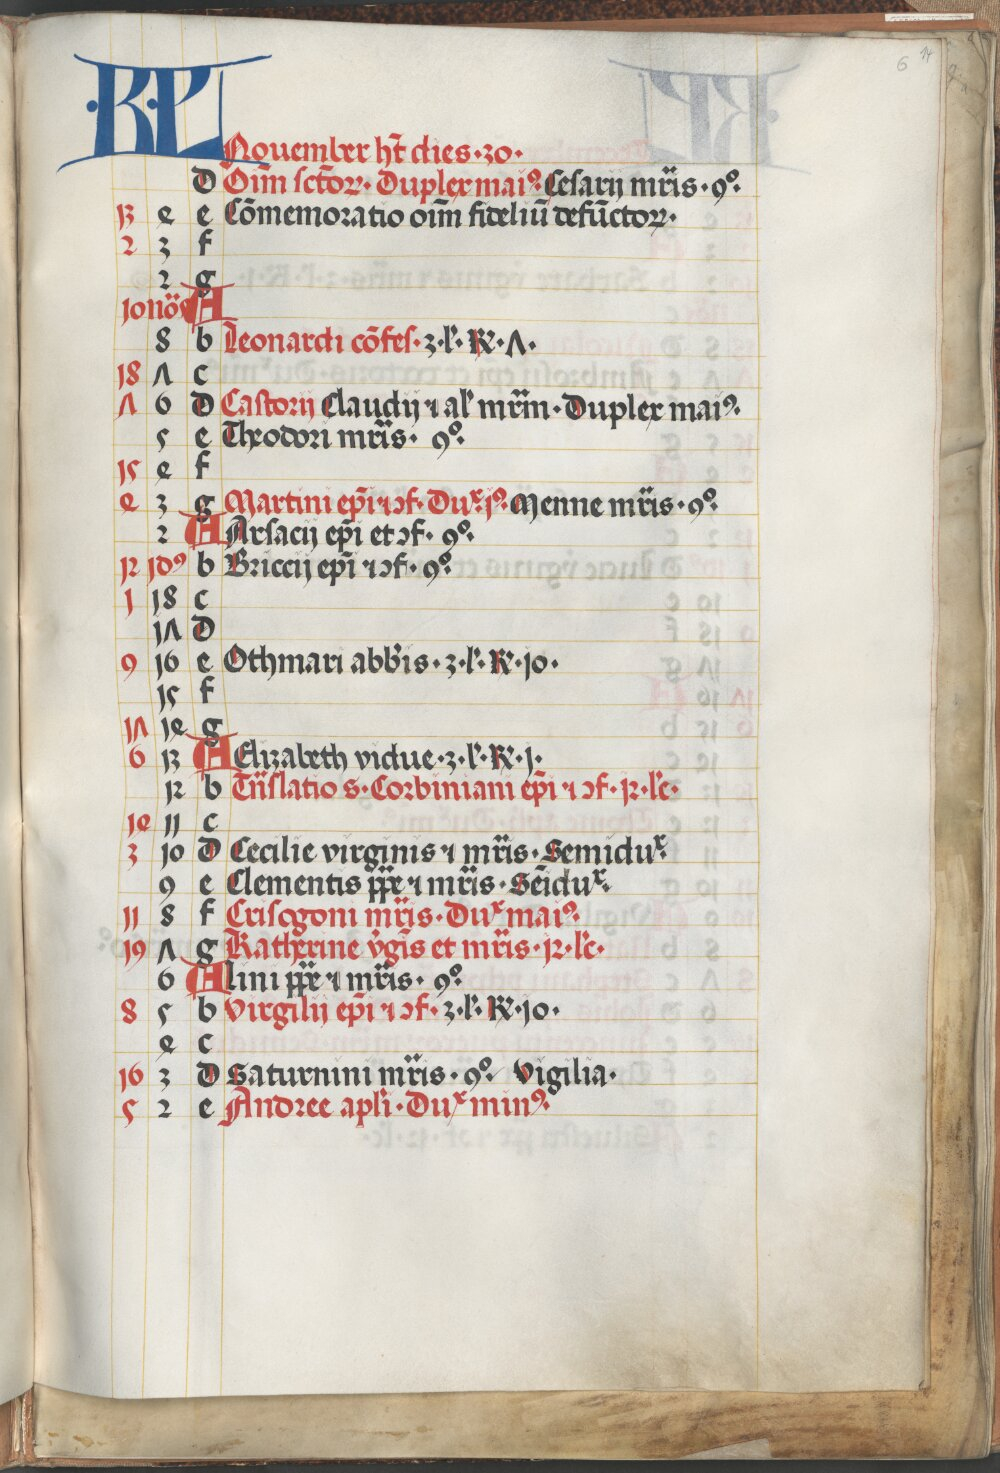 6 14
KL
November ht̄ dies · 30 ·
d Oīm sctōꝝ · Duplex maiꝰ. Cesarij mr̄is · 9º.
13 e e Cōmemoratio oīm fideliū defūctoꝝ ·
2 3 f
2 g
10 nōꝰ A
8 b Leonardi cōfes · 3 · l' · R' · Λ ·
18 Λ c
Λ 6 d Castorij Claudij ⁊ al' mr̄m · Duplex maiꝰ.
5 e Theodori mr̄is · 9º.
15 e f
e 3 g Martini epī ⁊ ↄf · Duˣ · j º. Menne mr̄is · 9º.
2 A Arsacij epī et ↄf · 9º.
12 jdꝰ b Briccij epī ⁊ ↄf · 9º.
1 18 c
1Λ d
9 16 e Othmari abb̄is · 3 · l' · R' · 10 ·
15 f
1Λ 1e g
6 13 A Elizabeth vidue · 3 · l' · R' · j ·
12 b Trn̄slatio s · Corbiniani epī ⁊ ↄf · 12 · l'c ·
1e 11 c
3 10 d Cecilie virginis ⁊ mr̄is · Semiduˣ.
9 e Clementis ꝑp̄e ⁊ mr̄is · Sēiduˣ.
11 8 f Crisogoni mr̄is · Duˣ maiꝰ.
19 Λ g Katherine v̄gīs et mr̄is · 12 · l'c ·
6 A Lini ꝑp̄e ⁊ mr̄is · 9º.
8 5 b Virgilij epī ⁊ ↄf · 3 · l' · R' · 10 ·
e c
16 3 d Saturnini mr̄is · 9º. Vigilia ·
5 2 e Andree apl'i · Duˣ minꝰ.